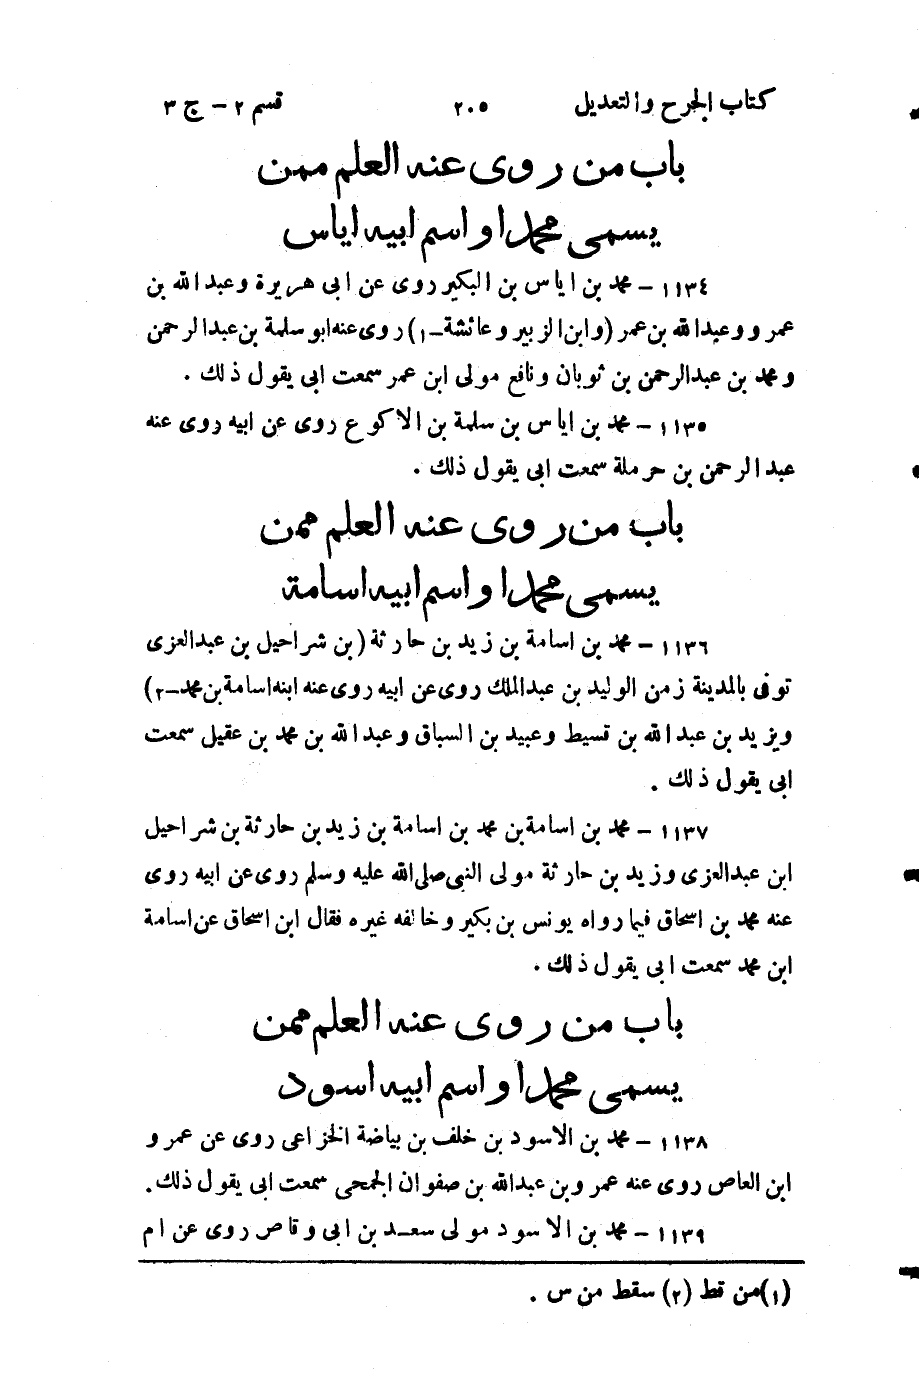 كتاب الجرح والتعديل ٢٠٥ قسم ٢ - ج ٣
باب من روى عنه العلم ممن
يسمى محمدا واسم ابيه اياس
١١٣٤ - محمد بن اياس بن البكير روى عن ابى هريرة وعبد الله بن
عمرو وعبد الله بن عمر (وابن الزبير وعائشة-١) روى عنه ابو سلمة بن عبد الرحمن
ومحمد بن عبد الرحمن بن ثوبان ونافع مولى ابن عمر سمعت ابى يقول ذلك .
١١٣٥ - محمد بن اياس بن سلمة بن الاكوع روى عن ابيه روى عنه
عبد الرحمن بن حرملة سمعت ابى يقول ذلك .
باب من روى عنه العلم ممن
يسمى محمدا واسم ابيه اسامة
١١٣٦ - محمد بن اسامة بن زيد بن حارثة (بن شراحيل بن عبد العزى
توفى بالمدينة زمن الوليد بن عبد الملك روى عن ابيه روى عنه ابنه اسامة بن محمد-٢)
ويزيد بن عبد الله بن قسيط وعبيد بن السباق وعبد الله بن محمد بن عقيل سمعت
ابى يقول ذلك .
١١٣٧ - محمد بن اسامة بن محمد بن اسامة بن زيد بن حارثة بن شراحيل
ابن عبد العزى وزيد بن حارثة مولى النبى صلى الله عليه وسلم روى عن ابيه روى
عنه محمد بن اسحاق فيما رواه يونس بن بكير وخالفه غيره فقال ابن اسحاق عن اسامة
ابن محمد سمعت ابى يقول ذلك .
باب من روى عنه العلم ممن
يسمى محمدا واسم ابيه اسود
١١٣٨ - محمد بن الاسود بن خلف بن بياضة الخزاعى روى عن عمرو
ابن العاص روى عنه عمرو بن عبد الله بن صفوان الجمحى سمعت ابى يقول ذلك.
١١٣٩ - محمد بن الاسود مولى سعد بن ابى وقاص روى عن ام
(١) من قط (٢) سقط من س .